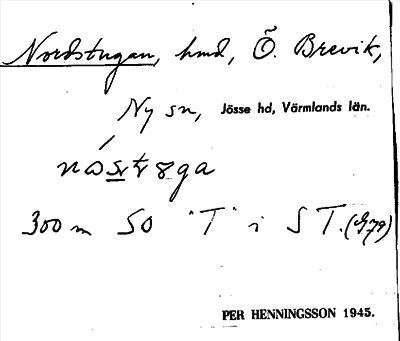 Nordstugan, hmd, Ö. Brevik,
Ny sn, Jösse hd, Värmlands län.
300 m SO "T" i ST. (G79)
PER HENNINGSSON 1945.